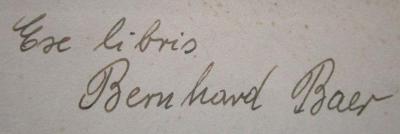 Exe libris
Bernhard Baer